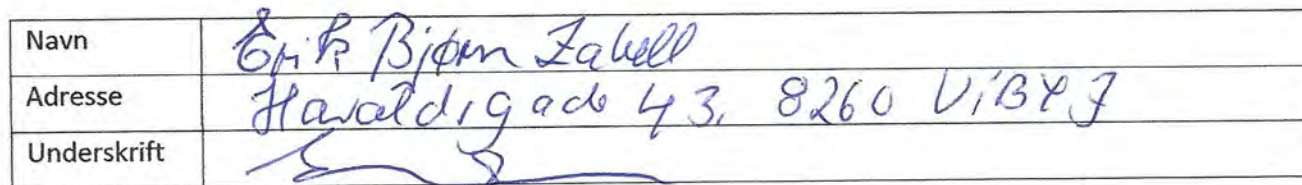 Navn Erik Bjørn Zabell
Adresse Haraldsgade 43, 8260 VIBY J
Underskrift